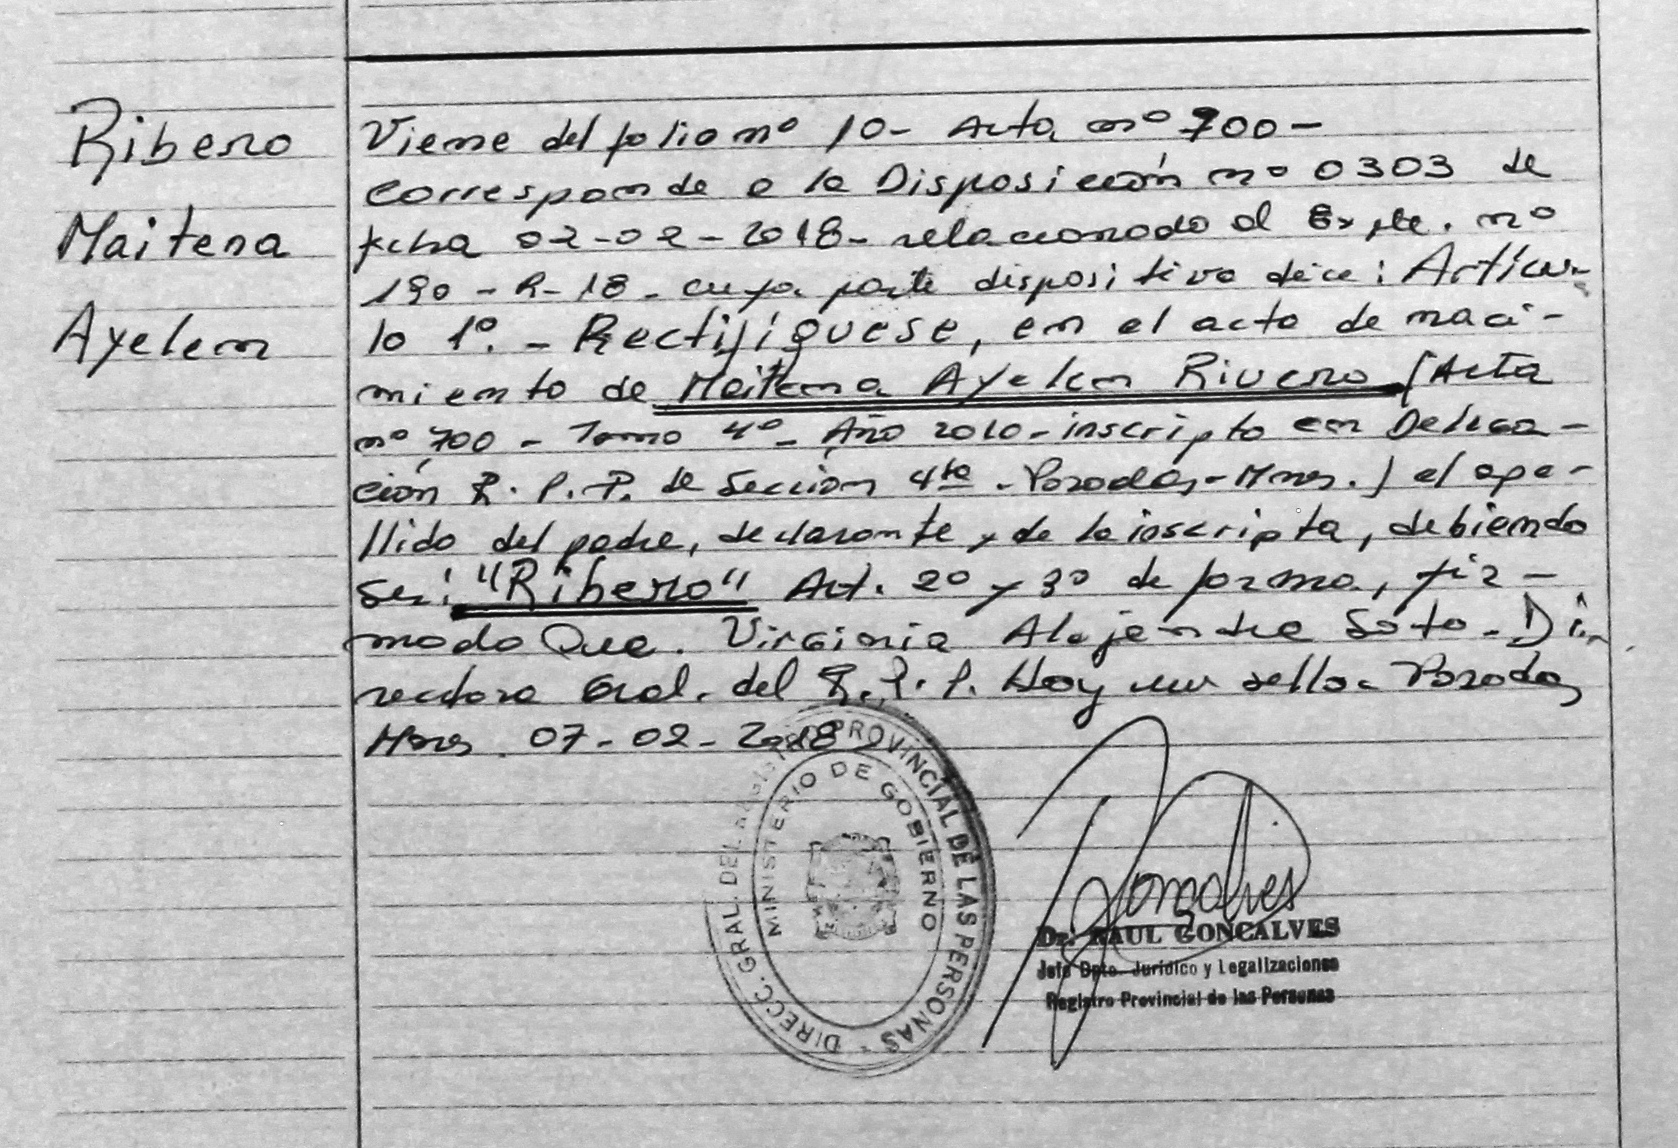 Ribero
Maitena
Ayelem
Viene del folio nº 10- Acta nº 700-
corresponde a la Disposición nº 0303 de
fecha 02-02-2018- relacionado al Expte. nº
190-R-18- cuya parte dispositiva dice: Artícu-
lo 1º.- Rectifíquese, en el acta de naci-
miento de Maitena Ayelem Rivero (Acta
nº 700 - Tomo 4º- Año 2010- inscripta en Delega-
ción R.P.P. de Sección 4ta - Posadas-Mnes.) el ape-
llido del padre, declarante y de la inscripta, debiendo
ser: "Ribero" Art. 2º y 3º de forma, fir-
mado Virginia Alejandra Soto- Di-
rectora Gral. del R.P.P. Hay un sello- Posadas
Mnes. 07-02-2018
DIRECC. GRAL. DEL REGISTRO PROVINCIAL DE LAS PERSONAS -
MINISTERIO DE GOBIERNO
Gonçalves
Dr. RAUL GONCALVES
Jefe Dpto. Jurídico y Legalizaciones
Registro Provincial de las Personas